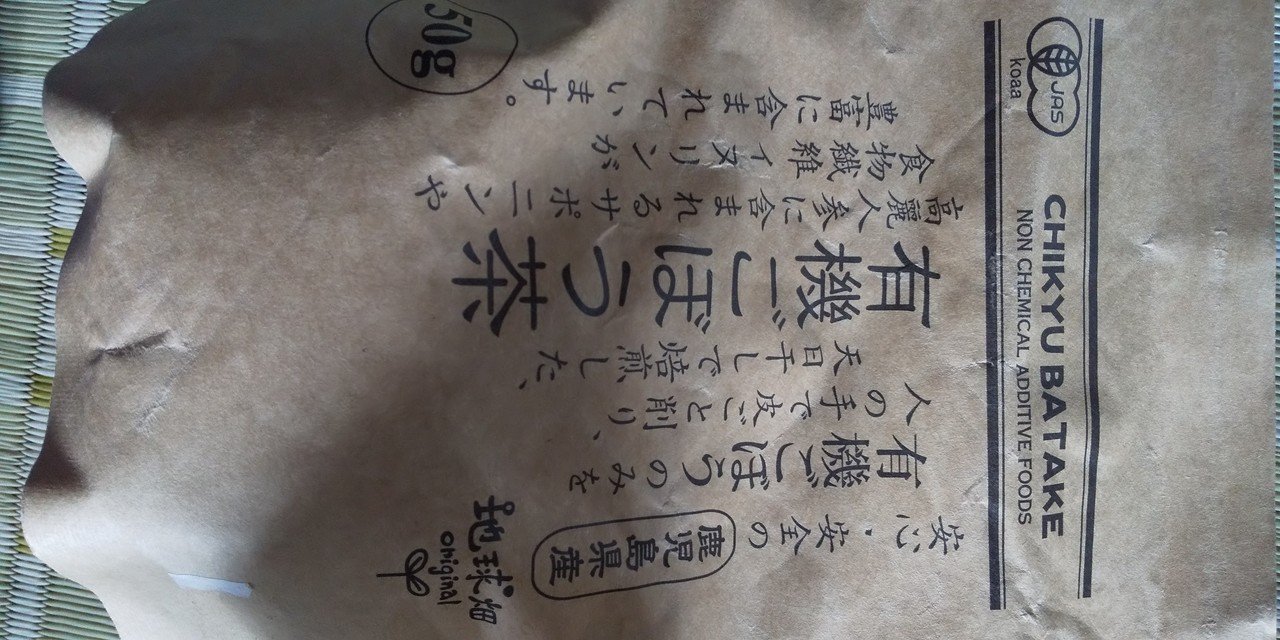 JAS
koaa
CHIKYU BATAKE
NON CHEMICAL ADDITIVE FOODS
安心・安全の
鹿児島県産
有機ごぼうのみを
人の手で皮ごと削り、
天日干しで焙煎した、
有機ごぼう茶
高麗人参に含まれるサポニンや
食物繊維イヌリンが
豊富に含まれています。
地球畑
original
50g